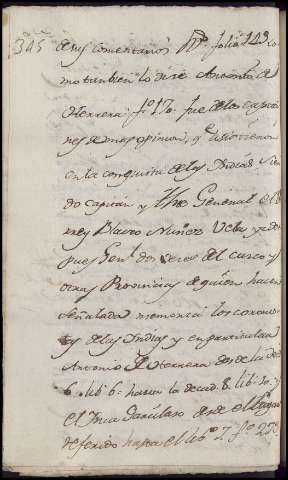 345
de sus comentarios Rs. folio 123 co
mo tambien lo dise Antonio de
Herrera fo 170 fue de los capita
nes de mas opinion, q sirvieron
en la conquista de las Indias sien
do capitan y Thte General el Vi
rrey Blasco Nuñez Vela y des
pues Genl dos veces del cusco y
otras Provincias de quien hacen
señalada memoria los coronis
tas de las Indias y en particular
Antonio de Herrera desde la dec
6. lib 6. hasta la decad 8. lib. 10. y
el Inca Garcilaso desde el
referido hasta el lib 7. fo 270